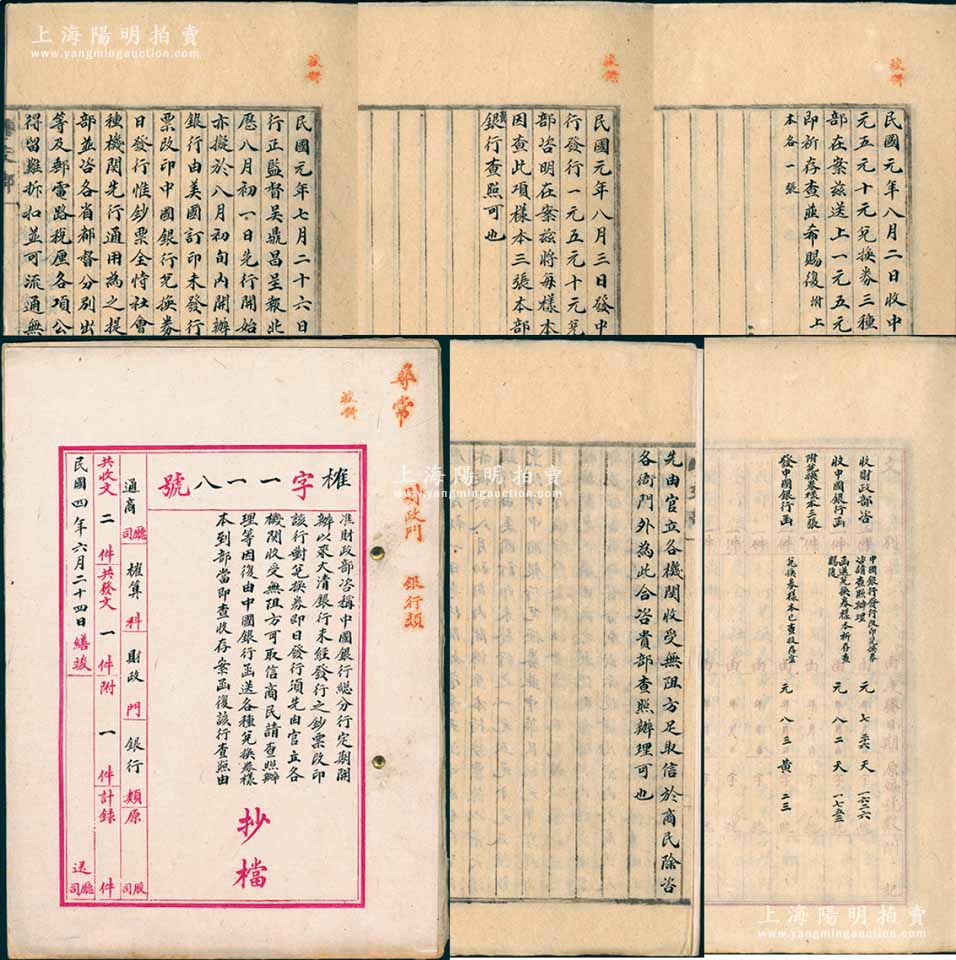 上海陽明拍賣
www.yangmingauction.com
上海陽明拍賣
www.yangmingauction.com
上海陽明拍賣
www.yangmingauction.com
民國元年八月二日收中
元五元十元兌換券三種
部在案茲送上一元五元
即祈存查並希賜復附上
本各一張
民國元年八月三日發中
行發行一元五元十元兌
部咨明在案茲將每樣本
因查此項樣本三張本部
銀行查照可也
民國元年七月二十六日
行正監督吳鼎昌呈報此
曆八月初一日先行開始
亦擬於八月初旬內開辦
銀行由美國訂印未發行
票改印中國銀行兌換券
日發行惟鈔票全恃社會
種機關先行通用為之提
部並咨各省都督分別出
等及郵電路稅厘各項公
得留難折扣並可流通無
尋常
財政門 銀行類
榷字一一八號
准財政部咨稱中國銀行總分行定期開
辦以來大清銀行未經發行之鈔票改印
該行對兌換券即日發行須先由官立各
機關收受無阻方可取信商民請查照辦
理等因復由中國銀行函送各種兌換券樣
本到部當即查收存案函復該行查照由
抄檔
通商廳司榷算科財政門銀行類原股司
共收文二件共發文一件附一件計錄件
民國四年六月二十四日繕竣送廳司
先由官立各機關收受無阻方足取信於商民除咨
各衙門外為此合咨貴部查照辦理可也
收財政部咨 中國銀行發行改印兌換券 涉請查照辦理 元 七 天 一六二六
收中國銀行函 函送兌換券樣本祈存查 賜復 元 八二 天
附兌換券樣本三張
發中國銀行函 兌換券樣本已查收存案 元 八三 黃 二三